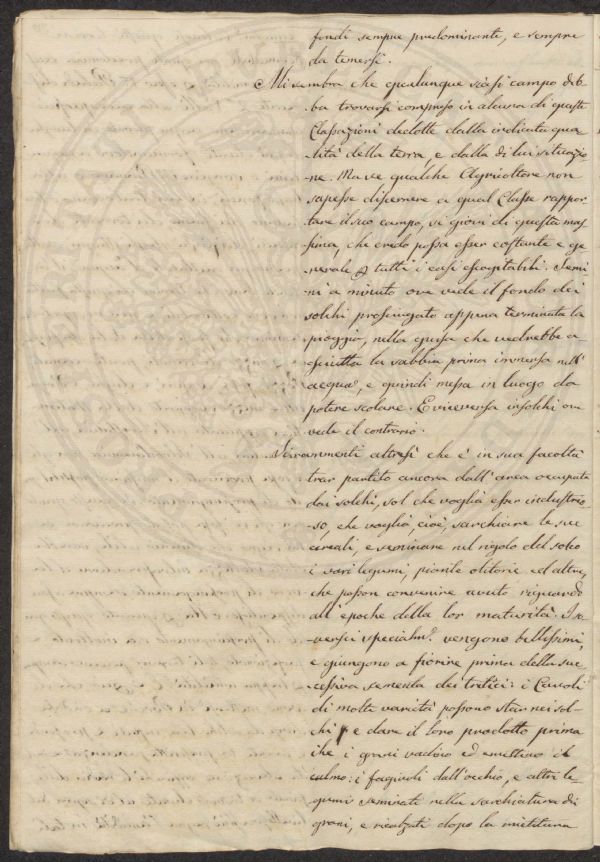 fondi sempre predominante, e sempre
da temersi.
Mi sembra che qualunque siasi campo deb-
ba trovarsi compreso in alcuna di queste
Classazioni dedotte dalla indicata qua
lità della terra, e dalla di lui situazio
ne. Ma se qualche Agricoltore non
sapesse discernere a qual Classe rappor-
tare il suo campo, si giovi di questa mas
sima, che credo possa esser costante e ge
nerale tutti i casi escogitabili: Semi
ni a minuto ove vede il fondo dei
solchi prosciugato appena terminata la
pioggia, nella guisa che vedrebbe a-
sciutta la sabbia prima immersa nell'
acqua, e quindi messa in luogo da
potere scolare. E viceversa in solchi ove
vede il contrario.
Si rammenti altresì che è in sua facoltà
trar partito ancora dall'area occupata
dai solchi, sol che voglia esser industrio-
so, che voglia, cioè, sarchiare le sue
cereali, e seminare nel rigolo del solco
i vari legumi, piante olitorie ed altre,
che posson convenire avuto riguardo
all'epoche della lor maturità. I
specialm.e vengono bellissimi,
e giungono a fiorire prima della suc
cessiva sementa dei tritici: i Cavoli
di molte varietà possono star nei sol-
chi e dare il loro prodotto prima
che i grani vadino ed emettino il
culmo: i fagiuoli dall'occhio, e altri le
gumi seminati nella sarchiatura dei
grani, e rincalzati dopo la mietitura